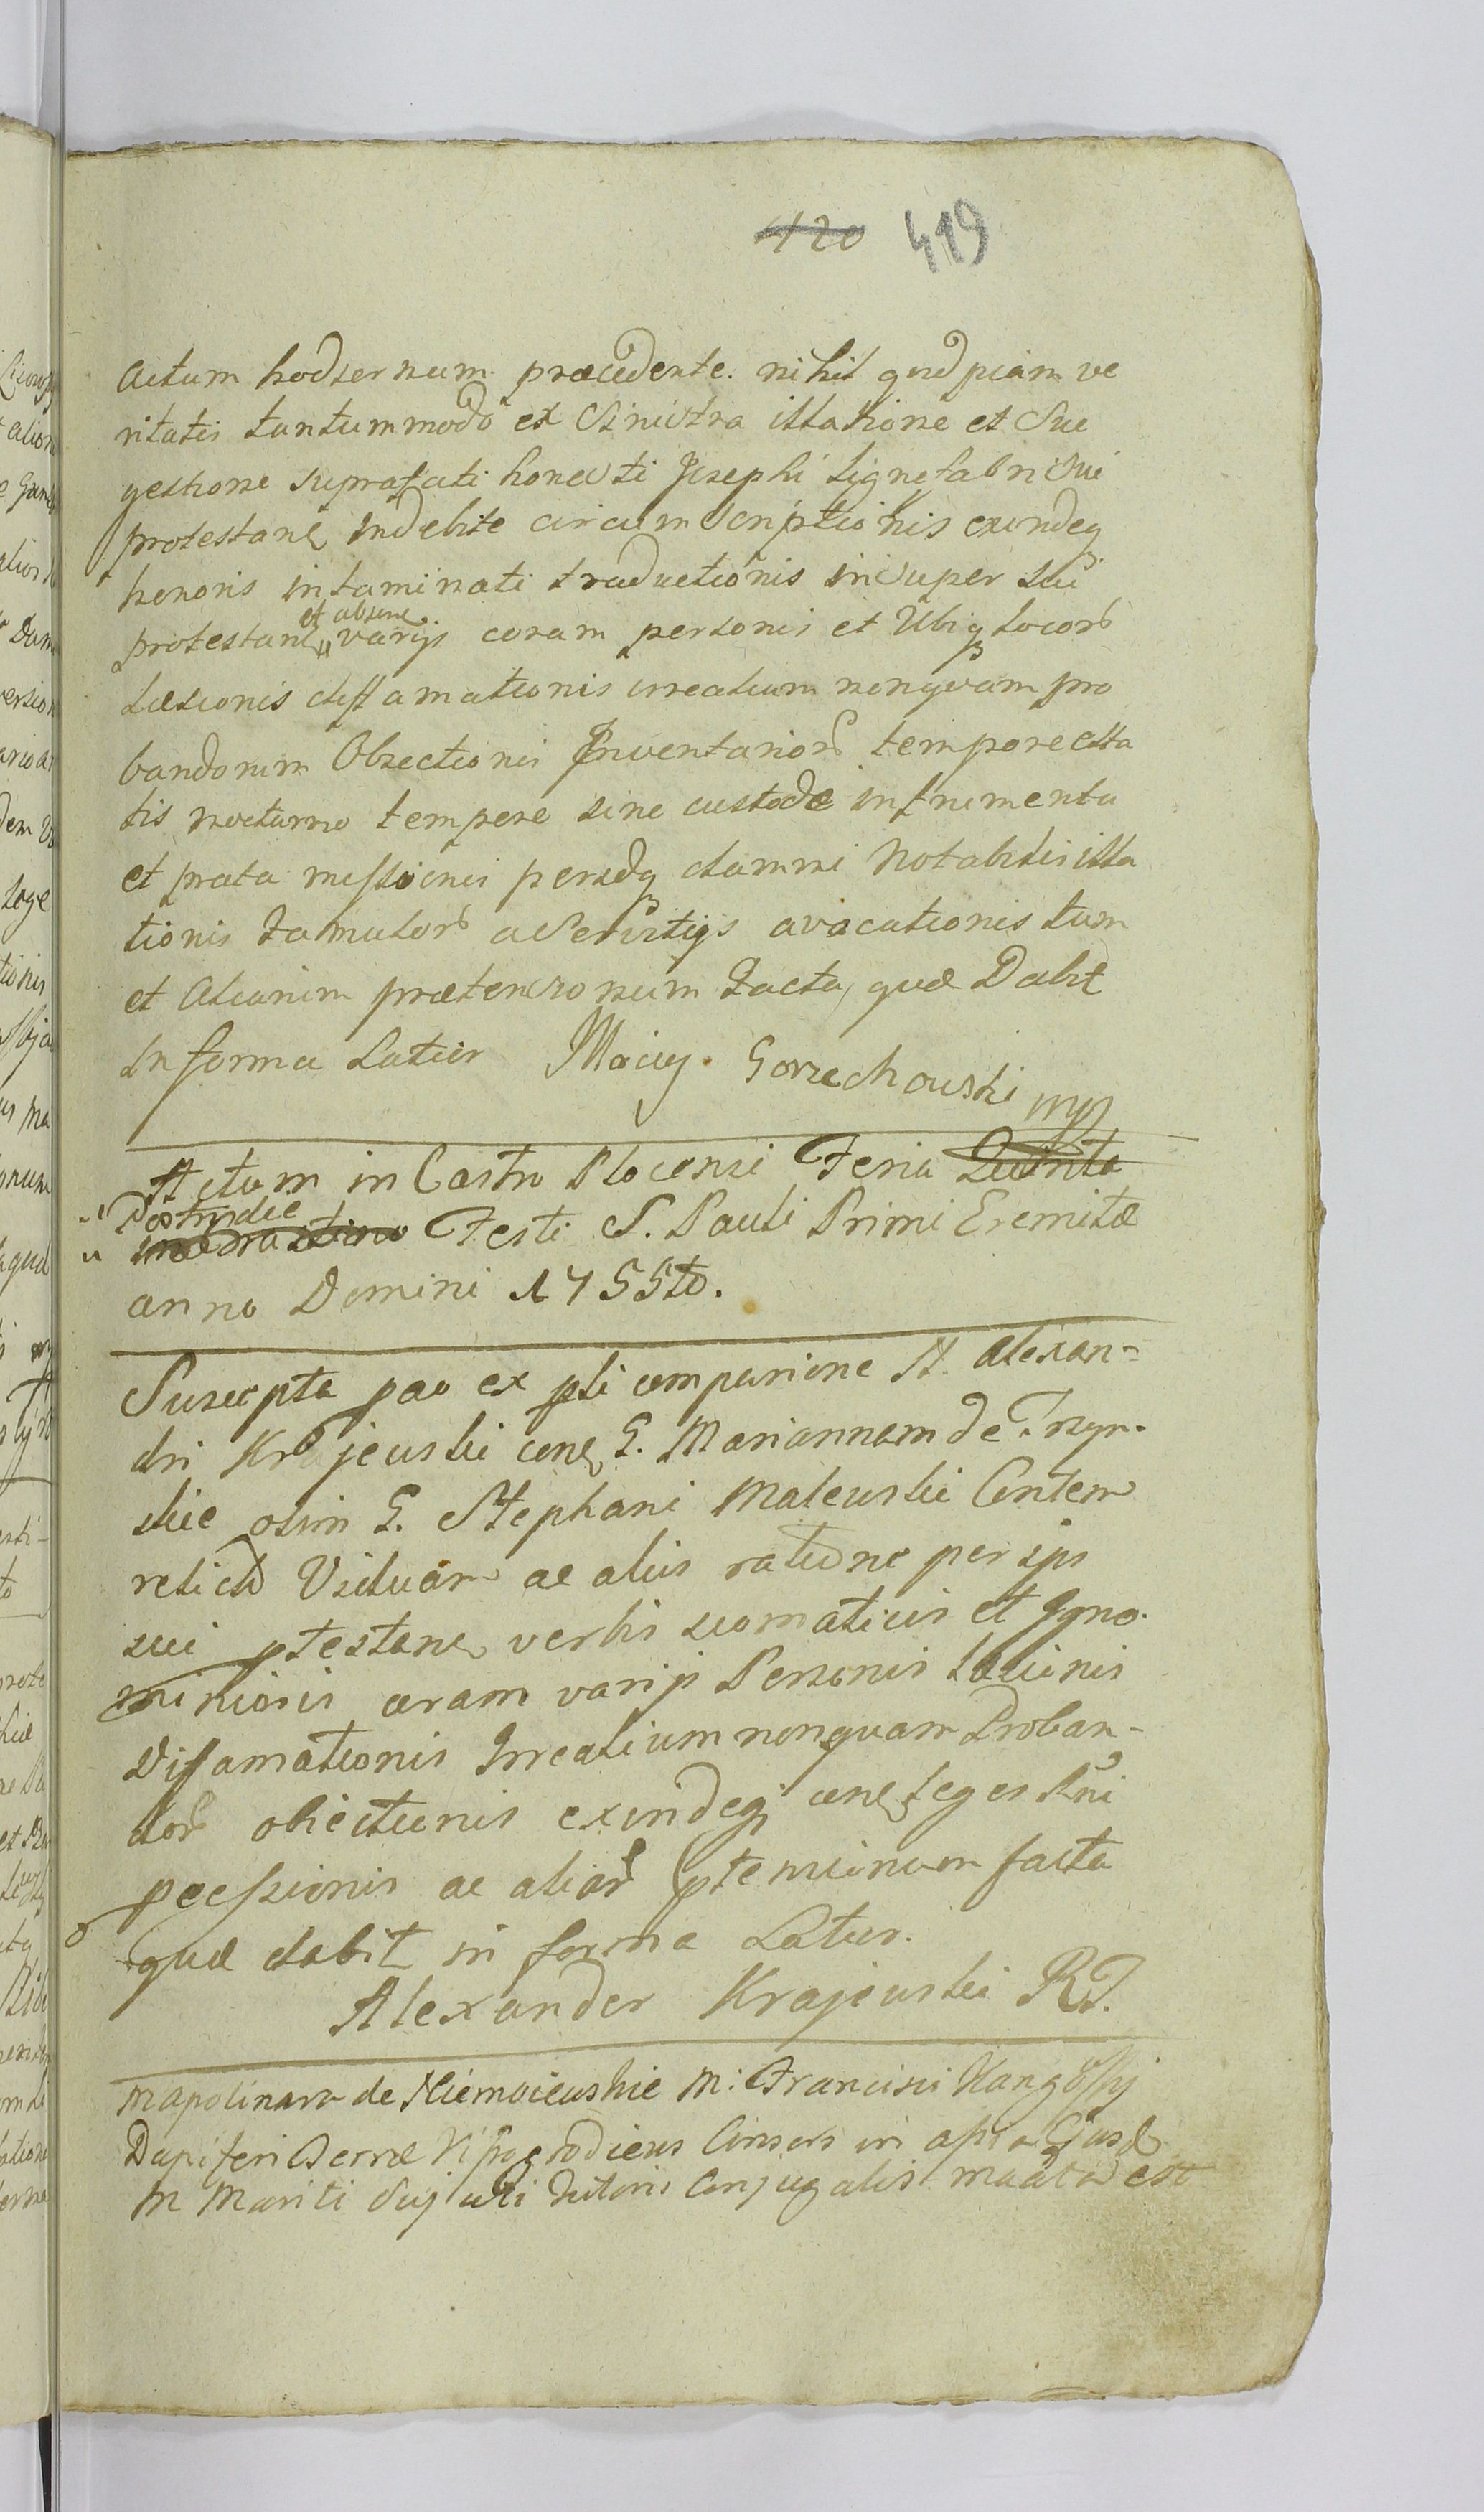 420 419
actum hodiernum præcedente. nihil quidpiam ve
ritatis tantummodo ex Sinistra illatione et Sug
gestione suprafati honesti Josephi Lignifabri Sui
protestane indebite circumscriptionis exindeq
honoris intaminati traductionis insuper sui
et absene
protestane varijs coram personis et Ubiq locor
Læsionis diffamationis irrealium nonquam pro
bandorum Obiectionis Inventarior tempore æsta
tis nocturno tempore sine custode in frumenta
et prata missionis perindeq damni Notabilis illa
tionis famulor a Servitijs avocationis tum
et aliarum prætensionum facta, quæ Dabit
In forma Latius Maciey Gorzechowski mp
Actum in Castro Plocensi Feria Quinta
Postridie
Festi S. Pauli Primi Eremitæ
anno Domini 1755to.
Suscepta pao ex pli comparione N. Alexan-
dri Krajewski cone G. Mariannam de
skie olim G. Stephani Malewski Consortem
relictã Viduam ac aliis ratione per ips
sui ptestane verbis scomaticis et Igno-
miniosis coram varijs Personis Læsionis
Diffamationis Irrealium nonquam Proban-
dor obiectionis exindeq cone leges Rni
pcessionis ac aliar ptensionum facta
quæ dabit in forma Latius.
Alexander Krajewski RT.
M Apolinara de Niemoiewskie M: Francisci
Dapiferi Terræ Visogrodiens Consors in aßia Ejusd
M Mariti Sui uti Tutoris Conjugalis est